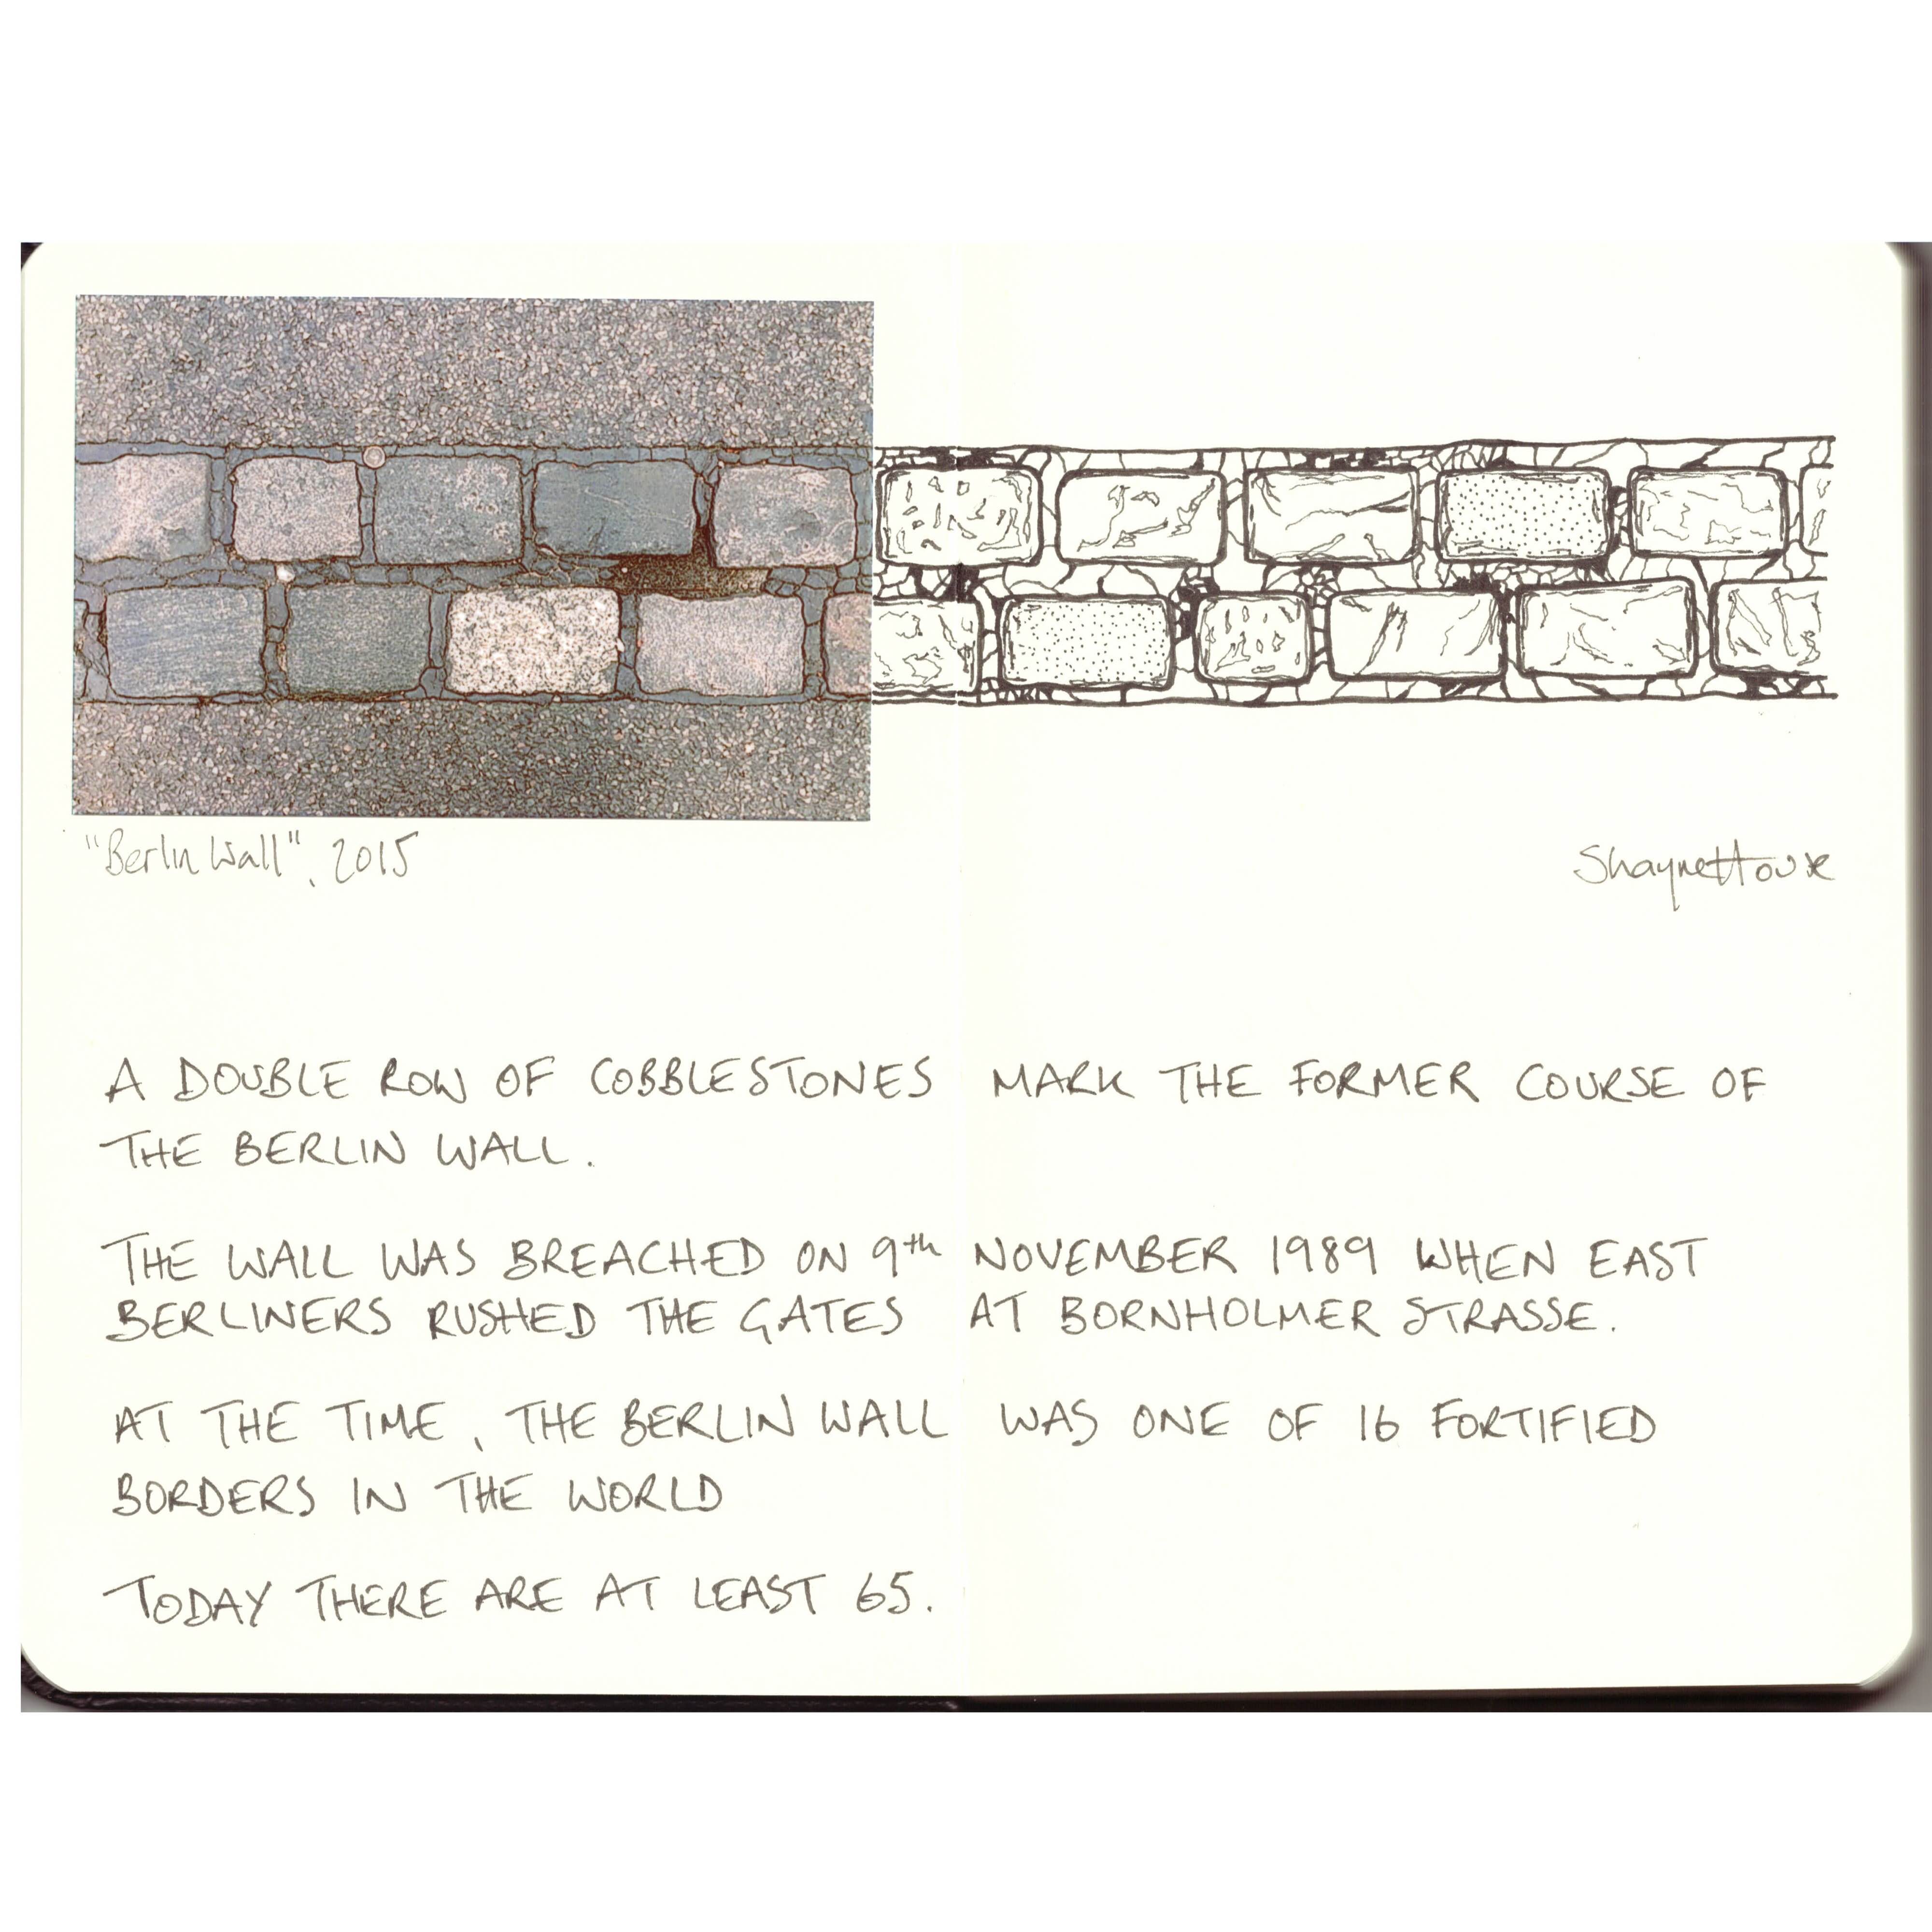 "Berlin Wall", 2015
Shayne House
A DOUBLE ROW OF COBBLESTONES MARK THE FORMER COURSE OF
THE BERLIN WALL.
THE WALL WAS BREACHED ON 9th NOVEMBER 1989 WHEN EAST
BERLINERS RUSHED THE GATES AT BORNHOLMER STRASSE.
AT THE TIME, THE BERLIN WALL WAS ONE OF 16 FORTIFIED
BORDERS IN THE WORLD
TODAY THERE ARE AT LEAST 65.